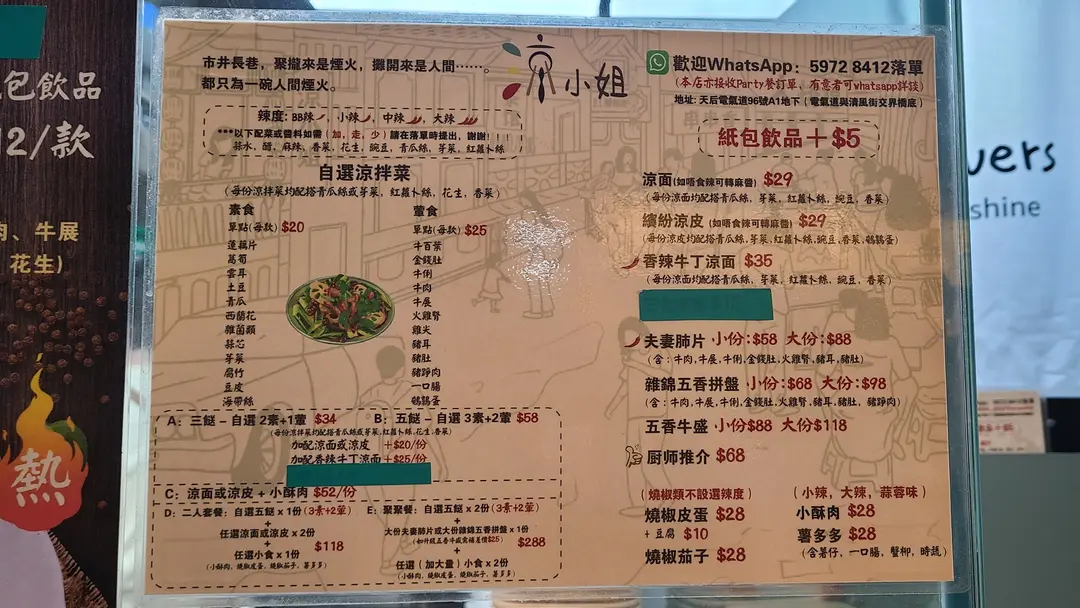 包飲品
12/款
肉、牛展
花生)
熱
市井長巷，聚攏來是煙火，攤開來是人間……。
都只為一碗人間煙火。
涼小姐
歡迎WhatsApp：5972 8412落單
(本店亦接收Party餐訂單，有意者可whatsapp詳談)
地址：天后電氣道96號A1地下（電氣道與清風街交界橋底）
辣度：BB辣，小辣，中辣，大辣
***以下配菜或醬料如需（加，走，少）請在落單時提出，謝謝！！！
蒜水，醋，麻辣，香菜，花生，豌豆，青瓜絲，芽菜，紅蘿卜絲
紙包飲品＋$5
自選涼拌菜
(每份涼拌菜均配搭青瓜絲或芽菜，紅蘿卜絲，花生，香菜)
素食
單點(每款) $20
蓮藕片
萵筍
雲耳
土豆
青瓜
西蘭花
雜菌類
蒜芯
芽菜
腐竹
豆皮
海帶絲
葷食
單點(每款) $25
牛百葉
金錢肚
牛俐
牛肉
牛展
火雞腎
雞尖
豬耳
豬肚
豬踭肉
一口腸
鵪鶉蛋
涼面(如唔食辣可轉麻醬) $29
(每份涼面均配搭青瓜絲，芽菜，紅蘿卜絲，豌豆，香菜)
繽紛涼皮(如唔食辣可轉麻醬) $29
(每份涼皮均配搭青瓜絲,芽菜,紅蘿卜絲,豌豆,香菜,鵪鶉蛋)
香辣牛丁涼面 $35
(每份涼面均配搭青瓜絲，芽菜，紅蘿卜絲，豌豆，香菜)
夫妻肺片 小份:$58 大份:$88
(含：牛肉,牛展,牛俐,金錢肚,火雞腎,豬耳,豬肚)
雜錦五香拼盤 小份:$68 大份:$98
(含：牛肉,牛展,牛俐,金錢肚,火雞腎,豬耳,豬肚，豬踭肉)
五香牛盛 小份$88 大份$118
厨师推介 $68
A：三餸－自選 2素+1葷 $34
B：五餸－自選 3素+2葷 $58
(每份涼拌菜均配搭青瓜絲或芽菜,紅蘿卜絲,花生,香菜)
加配涼面或涼皮 +$20/份
加配香辣牛丁涼面 +$25/份
C：涼面或涼皮 + 小酥肉 $52/份
D：二人套餐：自選五餸 x 1份 (3素+2葷)
+
任選涼面或涼皮 x 2份
+
任選小食 x 1份
$118
(小酥肉，燒椒皮蛋，燒椒茄子，薯多多)
E：聚聚餐：自選五餸 x 2份(3素+2葷)
+
大份夫妻肺片或大份雜錦五香拼盤 x 1份
+
任選（加大量）小食 x 2份
$288
(小酥肉，燒椒皮蛋，燒椒茄子，薯多多)
(燒椒類不設選辣度)
燒椒皮蛋 $28
+ 豆腐 $10
燒椒茄子 $28
(小辣，大辣，蒜蓉味)
小酥肉 $28
薯多多 $28
(含薯仔，一口腸，蟹柳，時蔬)
shine